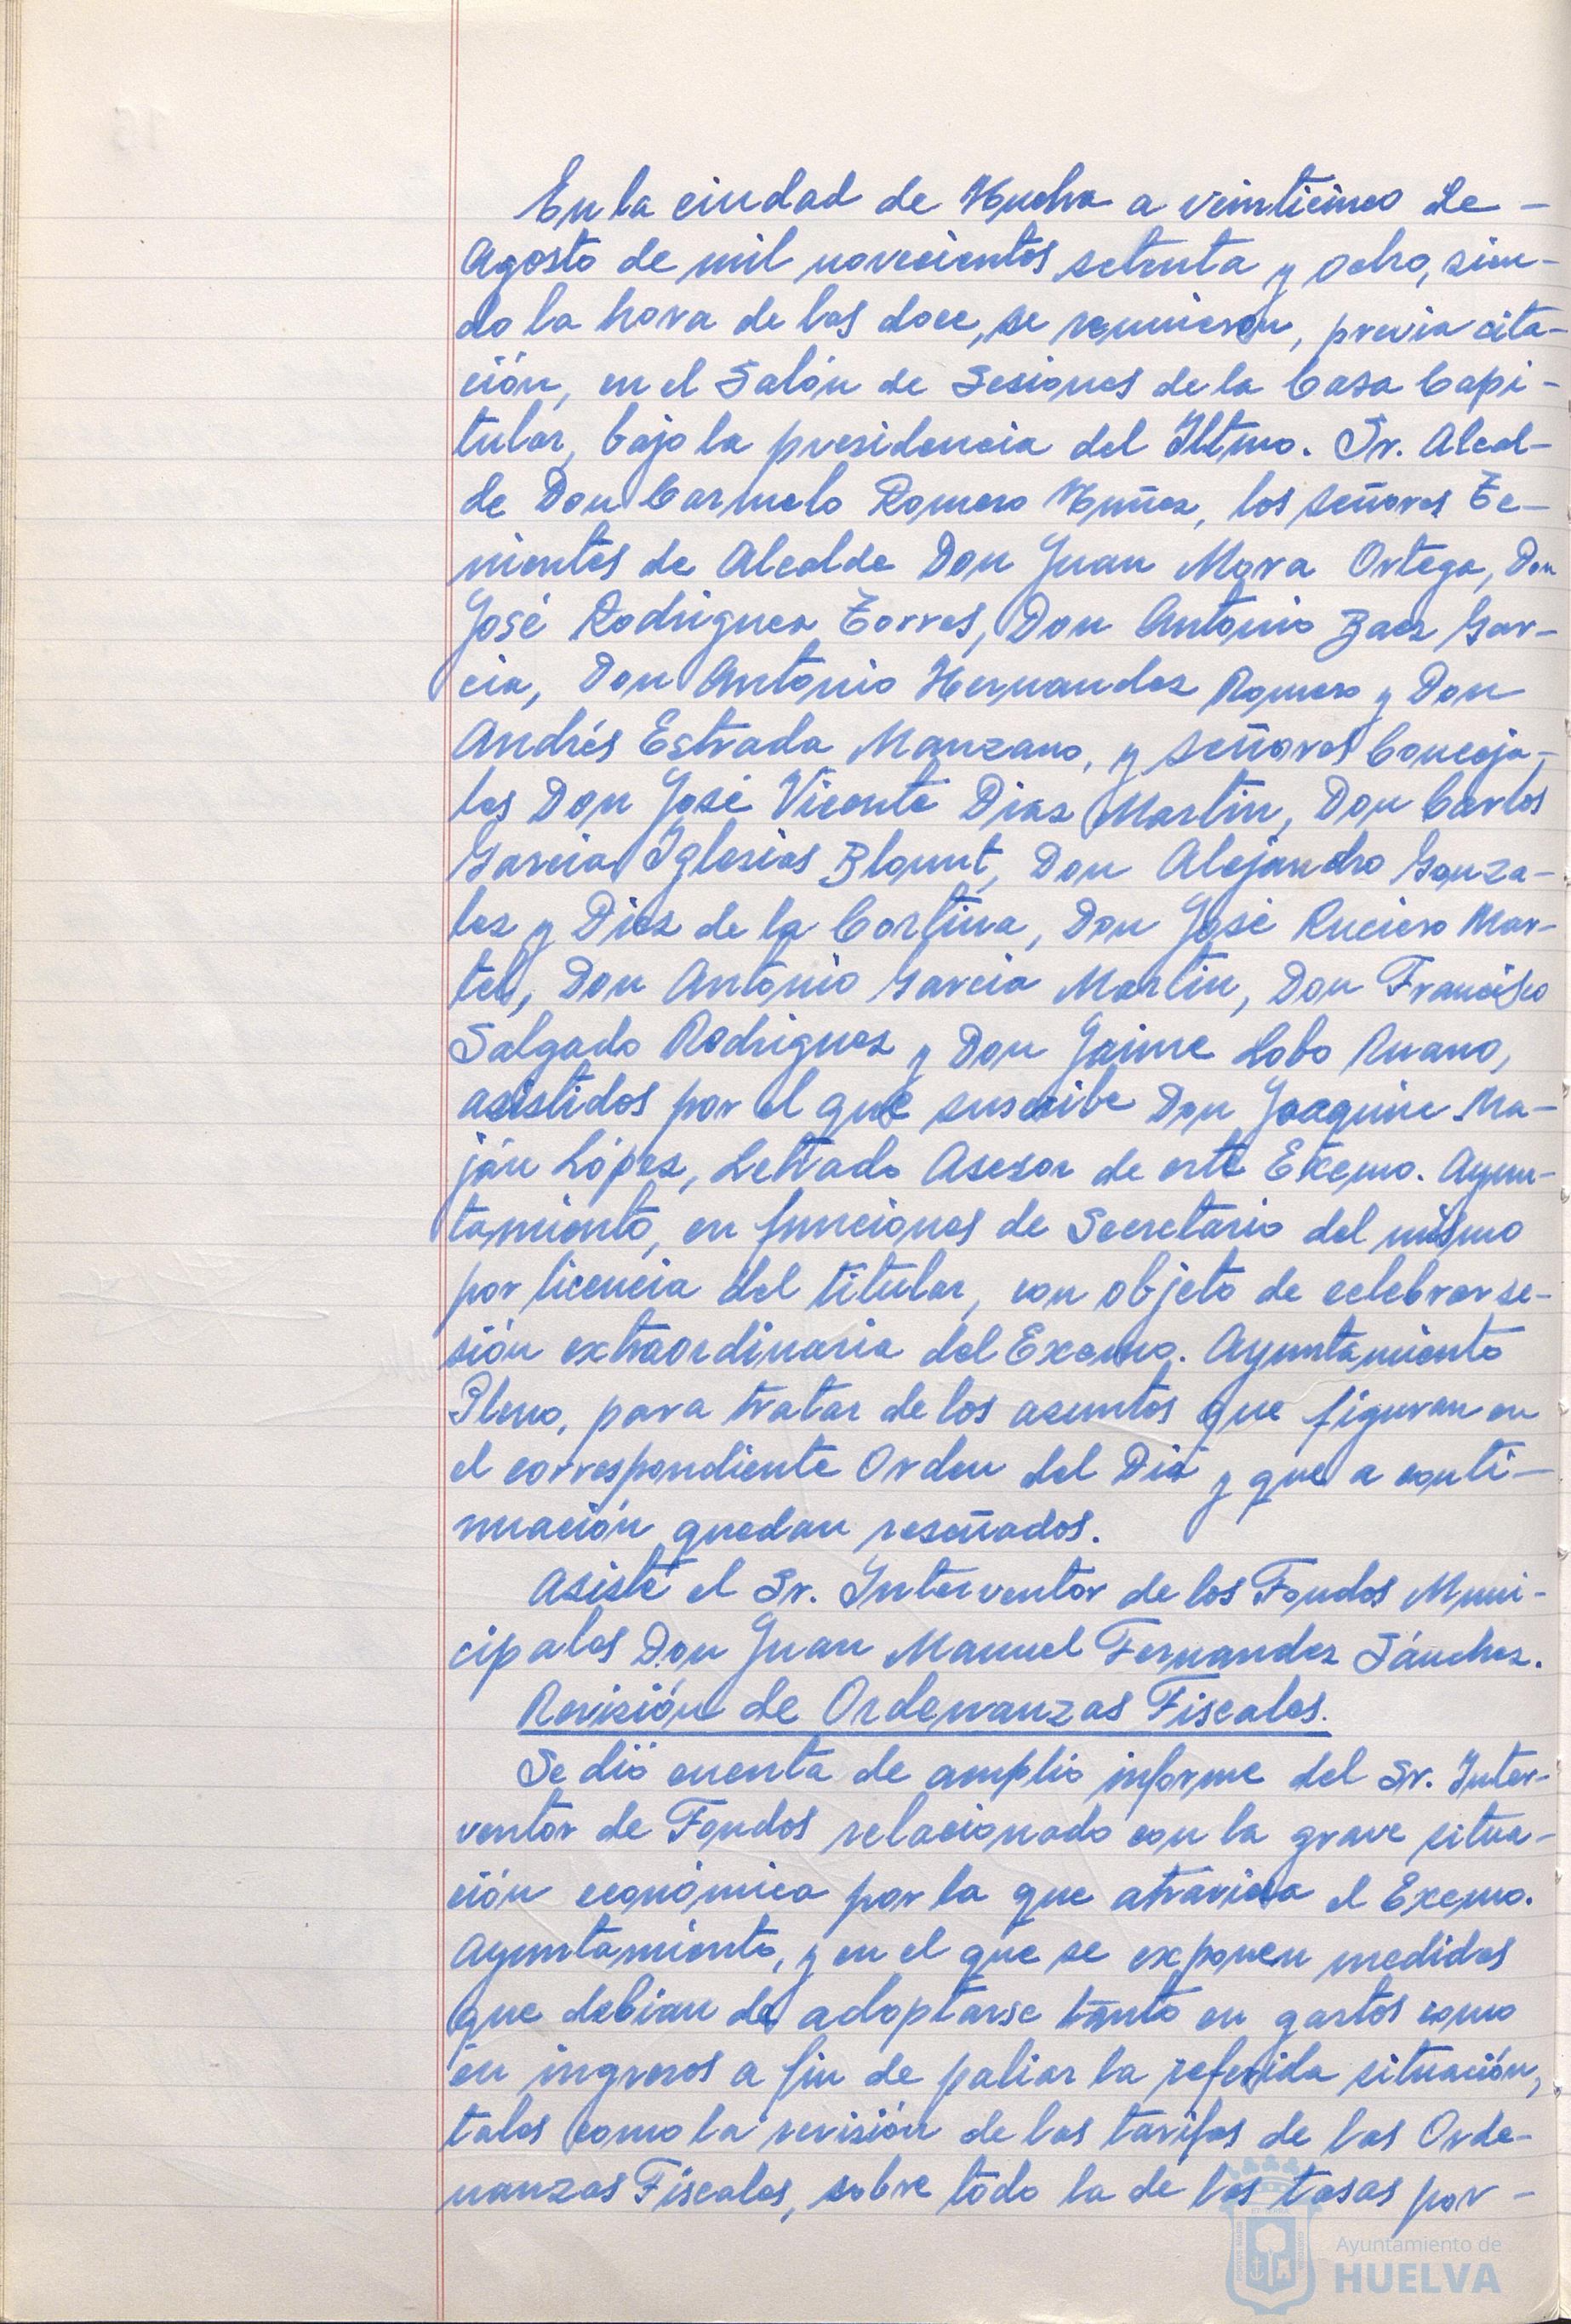 En la ciudad de Huelva a veinticinco de -
Agosto de mil novecientos setenta y ocho, sien-
do la hora de las doce, se reunieron, previa cita-
ción, en el Salón de Sesiones de la Casa Capi-
tular, bajo la presidencia del Iltmo. Sr. Alcal-
de Don Carmelo Romero Núñez, los señores Te-
nientes de Alcalde Don Juan Mora Ortega, Don
José Rodriguez Torres, Don Antonio Baez Gar-
cia, Don Antonio Hernandez Romero y Don
Andrés Estrada Manzano, y señores Conceja-
les Don José Vicente Diaz Martin, Don Carlos
Garcia Iglesias Blount, Don Alejandro Gonza-
lez y Diez de la Cortina, Don José Ruciero Mar-
tel, Don Antonio Garcia Martin, Don Francisco
Salgado Rodriguez y Don Jaime Lobo Ruano,
asistidos por el que suscribe Don Joaquin Ma-
ján López, Letrado Asesor de este Excmo. Ayun-
tamiento, en funciones de Secretario del mismo
por licencia del titular, con objeto de celebrar se-
sión extraordinaria del Excmo. Ayuntamiento
Pleno, para tratar de los asuntos que figuran en
el correspondiente Orden del Dia y que a conti-
nuación quedan reseñados.
Asiste el Sr. Interventor de los Fondos Muni-
cipales Don Juan Manuel Fernandez Sánchez.
Revisión de Ordenanzas Fiscales.
Se dió cuenta de amplio informe del Sr. Inter-
ventor de Fondos relacionado con la grave situa-
ción económica por la que atraviesa el Excmo.
Ayuntamiento, y en el que se exponen medidas
que debian de adoptarse tanto en gastos como
en ingresos a fin de paliar la referida situación,
tales como la revisión de las tarifas de las Orde-
nanzas Fiscales, sobre todo la de las tasas por -
Ayuntamiento de
HUELVA